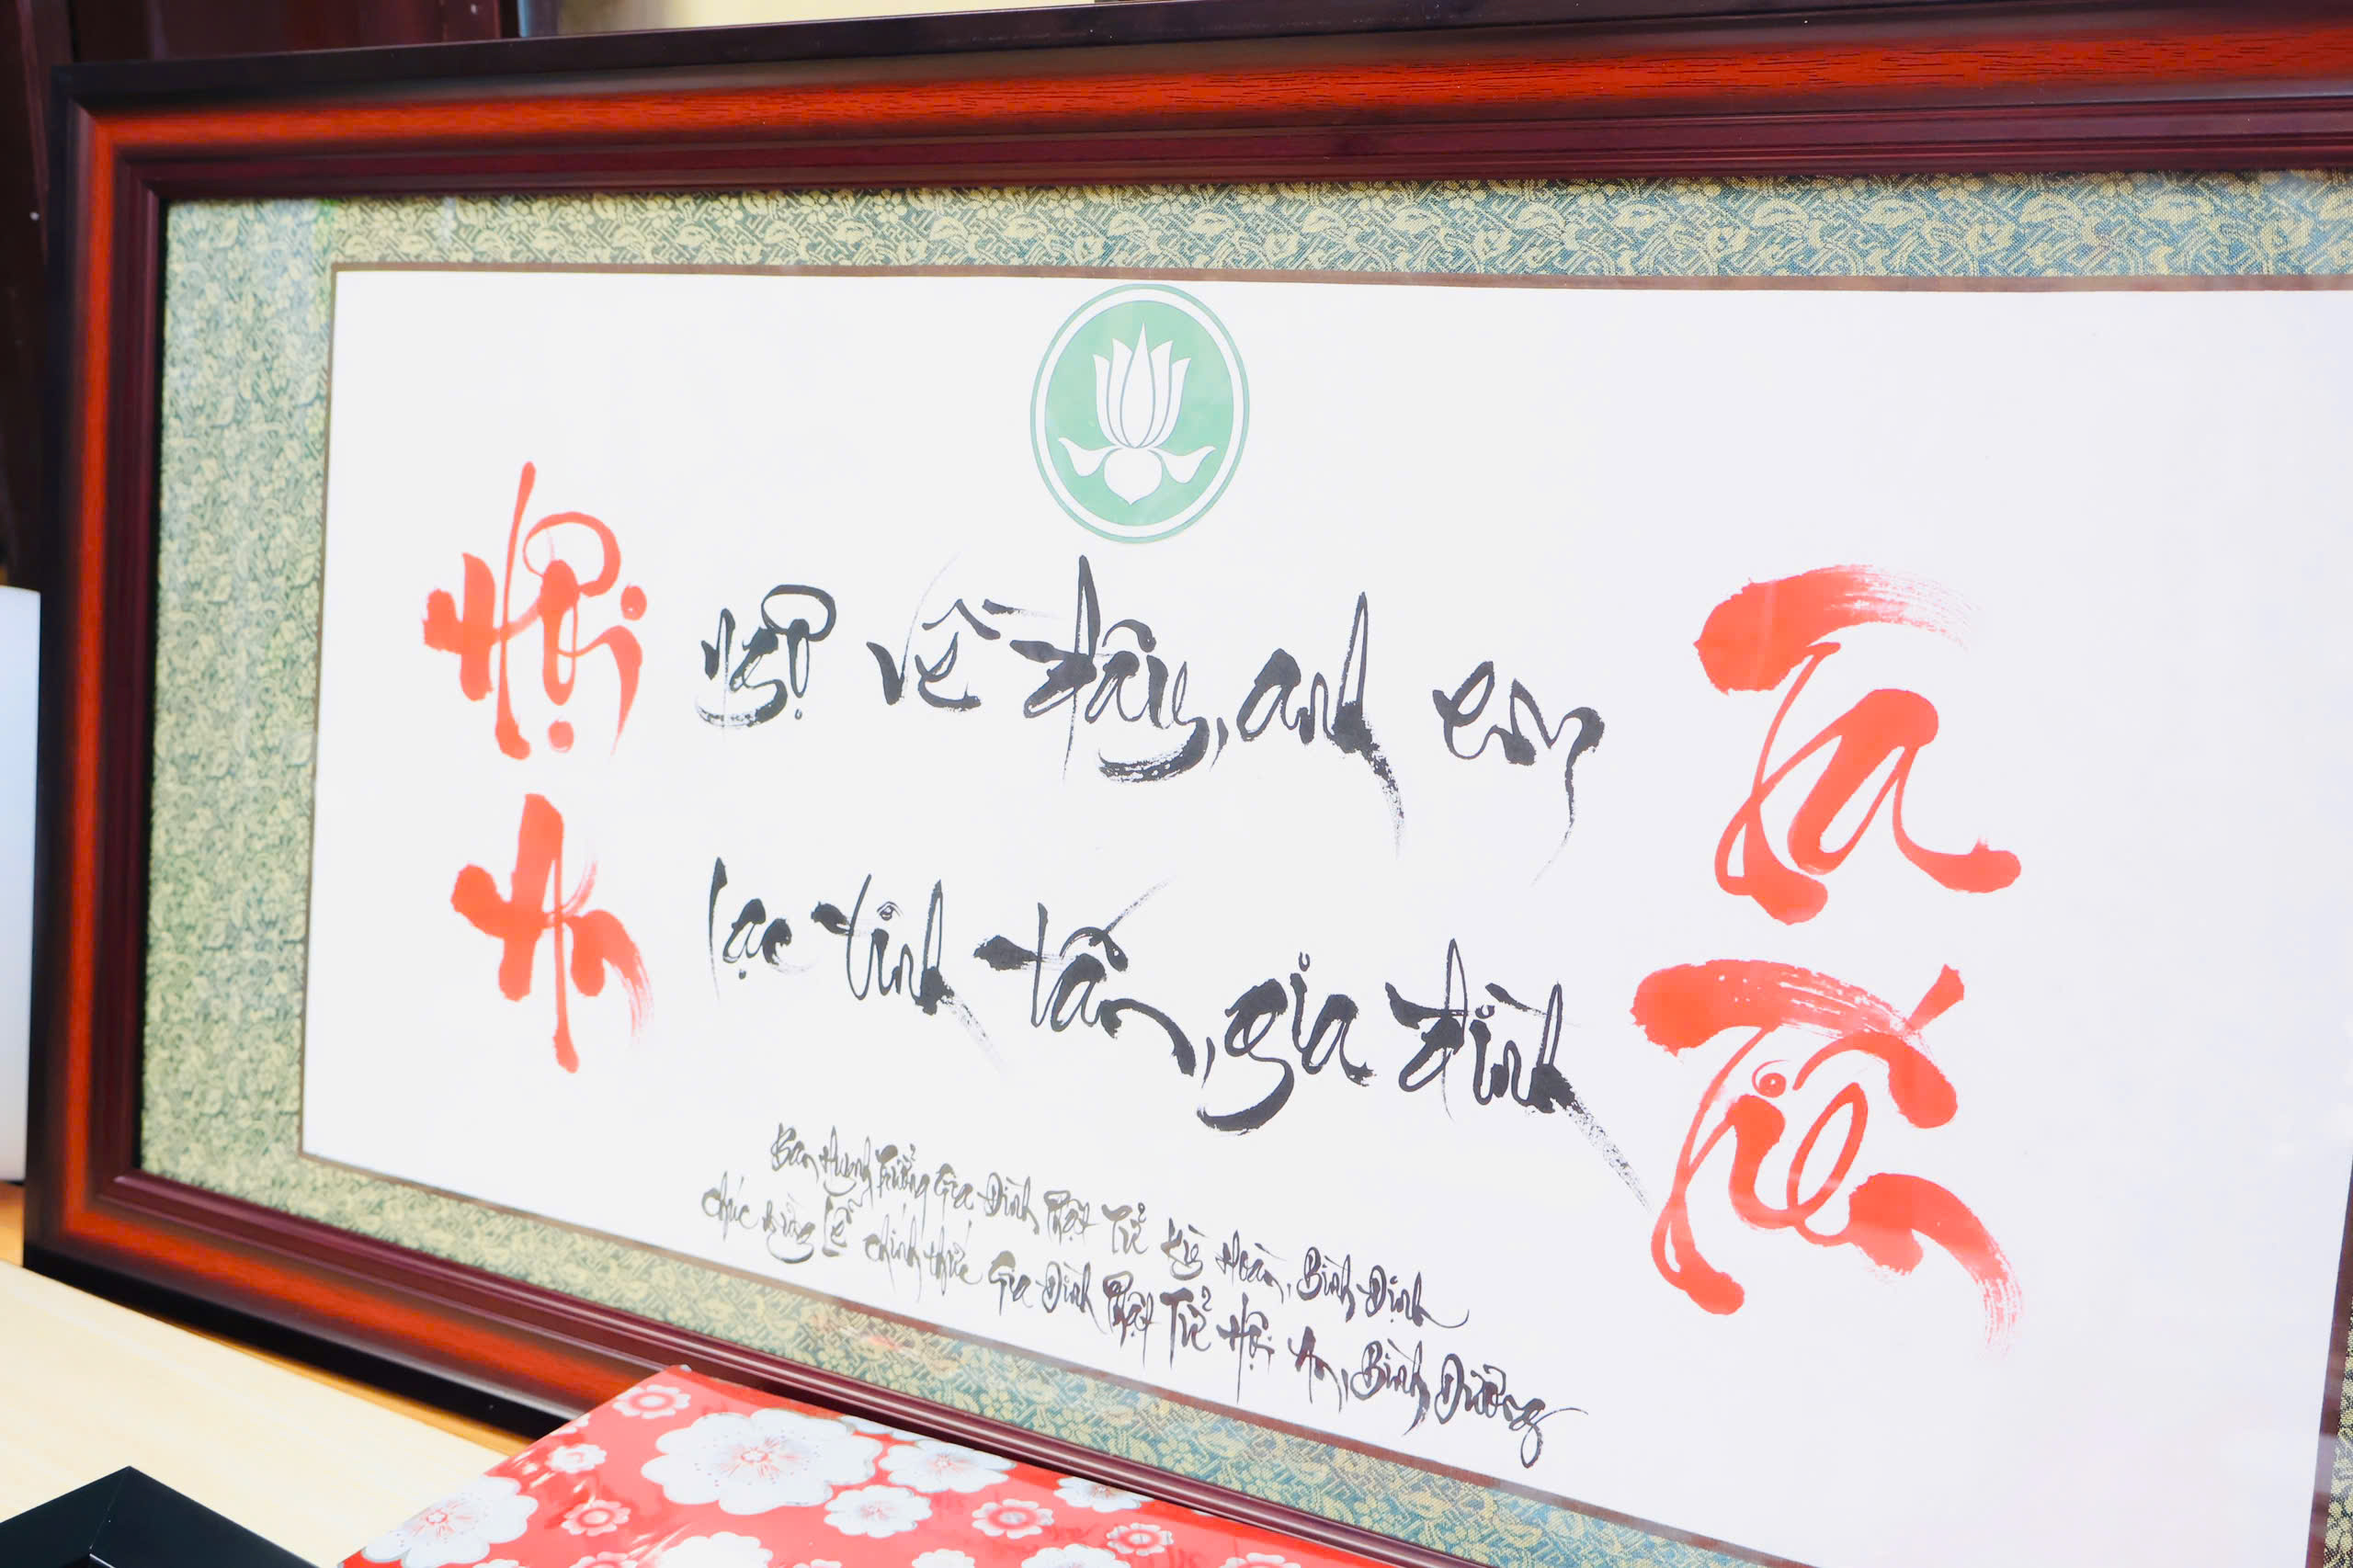 Hội ngộ về đây, anh em Ta
An lạc tinh tấn, gia đình Tiến
Ban Huynh Trưởng Gia Đình Phật Tử Kỳ Hoàn, Bình Định
chúc mừng Lễ chính thức Gia Đình Phật Tử Hội An, Bình Dương